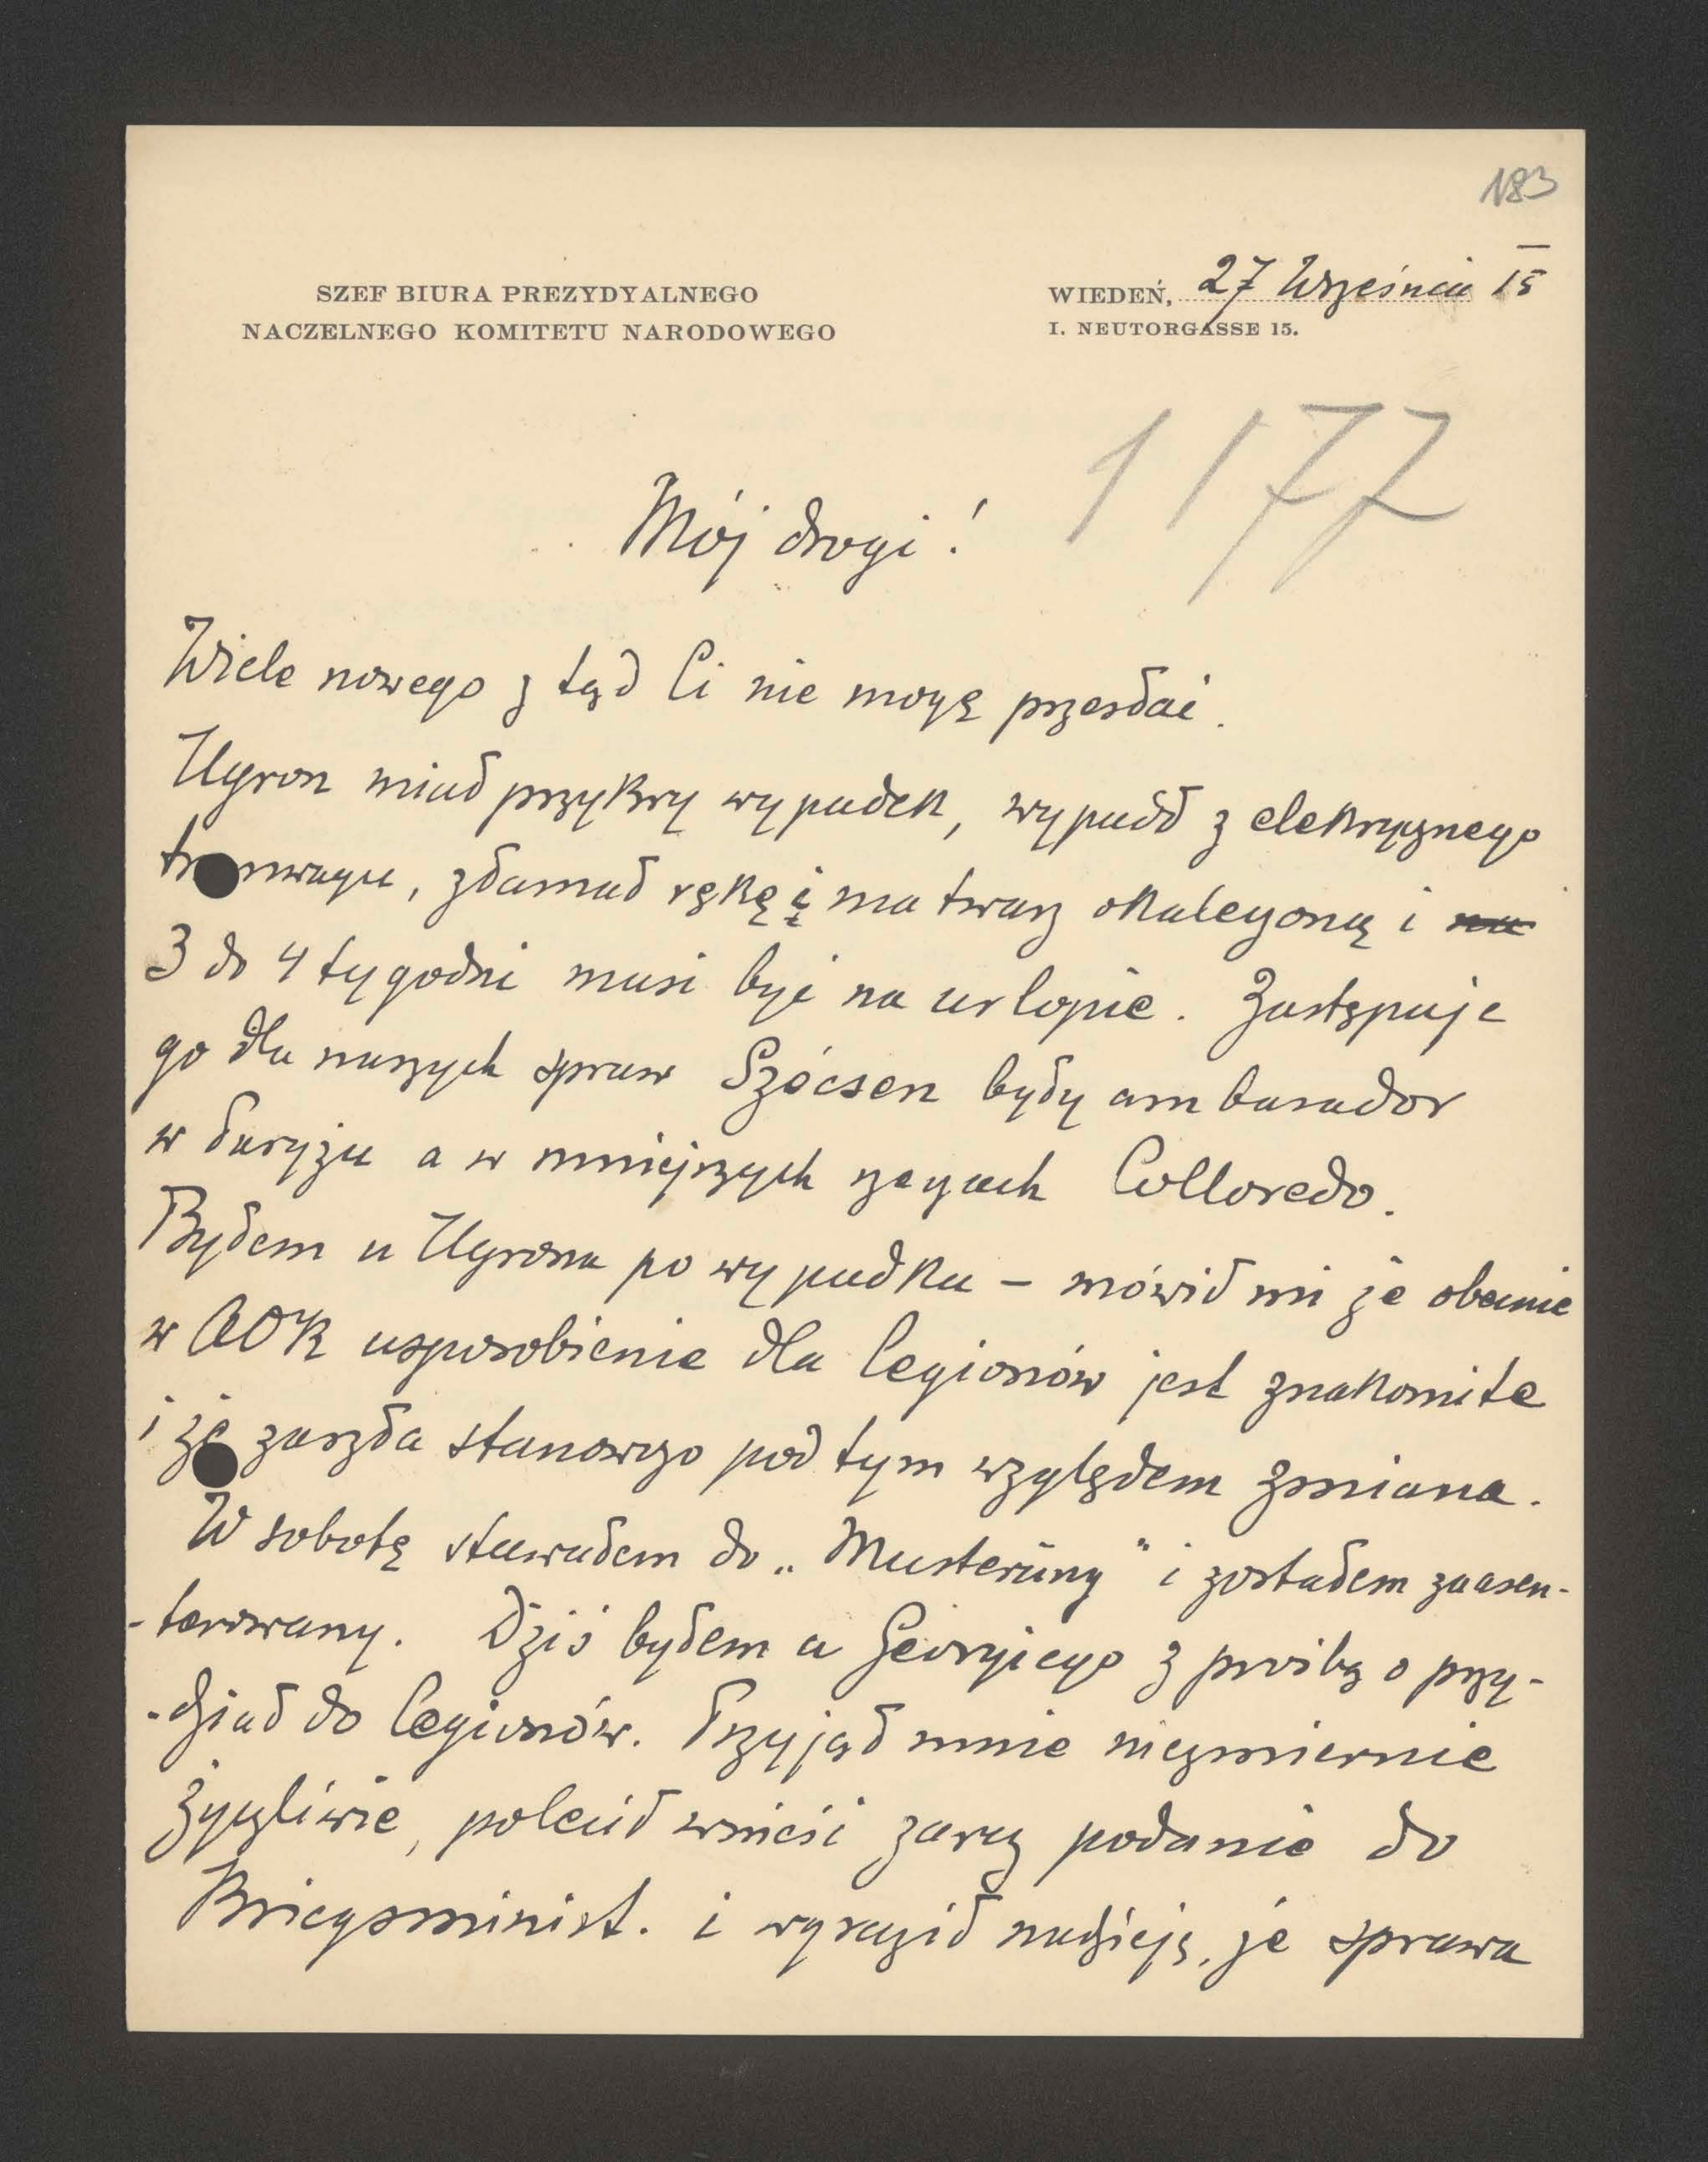 183
SZEF BIURA PREZYDYALNEGO
NACZELNEGO KOMITETU NARODOWEGO
WIEDEŃ, 27 Września 15
I. NEUTORGASSE 15.
1177
Mój drogi!
Wiele nowego z tąd Ci nie mogę przesłać.
Ugron miał przykry wypadek, wypadł z elektrycznego
tramwayu, złamał rękę i ma twarz okaleczoną i na
3 do 4 tygodni musi być na urlopie. Zastępuje
go dla naszych spraw Szécsen były ambasador
w Paryżu a w mniejszych rzeczach Colloredo.
Byłem u Ugrona po wypadku – mówił mi że obecnie
w AOK usposobienie dla Legionów jest znakomite
i że zaszła stanowczo pod tym względem zmiana.
W sobotę stawałem do „Musterüng" i zostałem zaasen-
-terowany. Dziś byłem u Georgiego z prośbą o przy-
-dział do Legionów. Przyjął mnie niezmiernie
życzliwie, polecił wnieść zaraz podanie do
Kriegsminist. i wyraził nadzieję, że sprawa